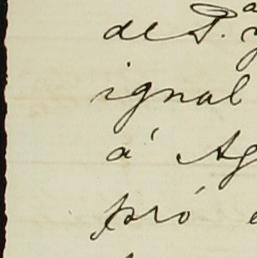 de P.
ignal
á Ag
pró